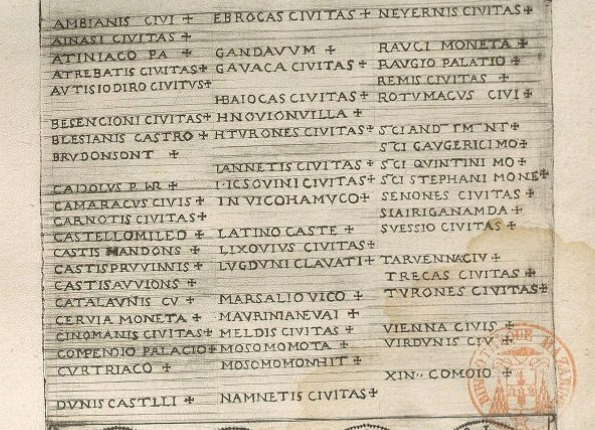 AMBIANIS CIVI ✠
AINASI CIVITAS ✠
ATINIACO PA ✠
ATREBATIS CIVITAS ✠
AVTISIODIRO CIVITVS ✠
BESENCIONI CIVITAS ✠
BLESIANIS CASTRO ✠
BRVDONSONT ✠
CADOLVS P
CAMARACVS CIVIS ✠
CARNOTIS CIVITAS ✠
CASTELLOMILED ✠
CASTIS MANDONS ✠
CASTISPRVVINNIS ✠
CASTISAVVIONS ✠
CATALAVNIS CV ✠
CERVIA MONETA ✠
CINOMANIS CIVITAS ✠
COMPENDIO PALACIO ✠
CVRTRIACO ✠
DVNIS CASTLLI ✠
EBROCAS CIVITAS ✠
GANDAVVM ✠
GAVACA CIVITAS ✠
HBAIOCAS CIVITAS ✠
HNOVIONVILLA ✠
HTVRONES CIVITAS ✠
IANNETIS CIVITAS ✠
CIVITAS ✠
IN VICOHAMVCO ✠
LATINO CASTE ✠
LIXOVIVS CIVITAS ✠
LVGDVNI CLAVATI ✠
MARSALIO VICO ✠
MAVRINIANEVAI ✠
MELDIS CIVITAS ✠
MOSOMOMOTA ✠
MOSOMOMONHIT ✠
NAMNETIS CIVITAS ✠
NEVERNIS CIVITAS ✠
RAVCI MONETA ✠
RAVGIO PALATIO ✠
REMIS CIVITAS ✠
ROTVMACVS CIVI ✠
SCI AND
SCI GAVGERICI MO ✠
SCI QVINTINI MO ✠
SCI STEPHANI MONE ✠
SENONES CIVITAS ✠
SIAIRIGANAMDA ✠
SVESSIO CIVITAS ✠
TARVENNACIV ✠
TRECAS CIVITAS ✠
TVRONES CIVITAS ✠
VIENNA CIVIS ✠
VIRDVNIS CIV ✠
XIN COMOIO ✠